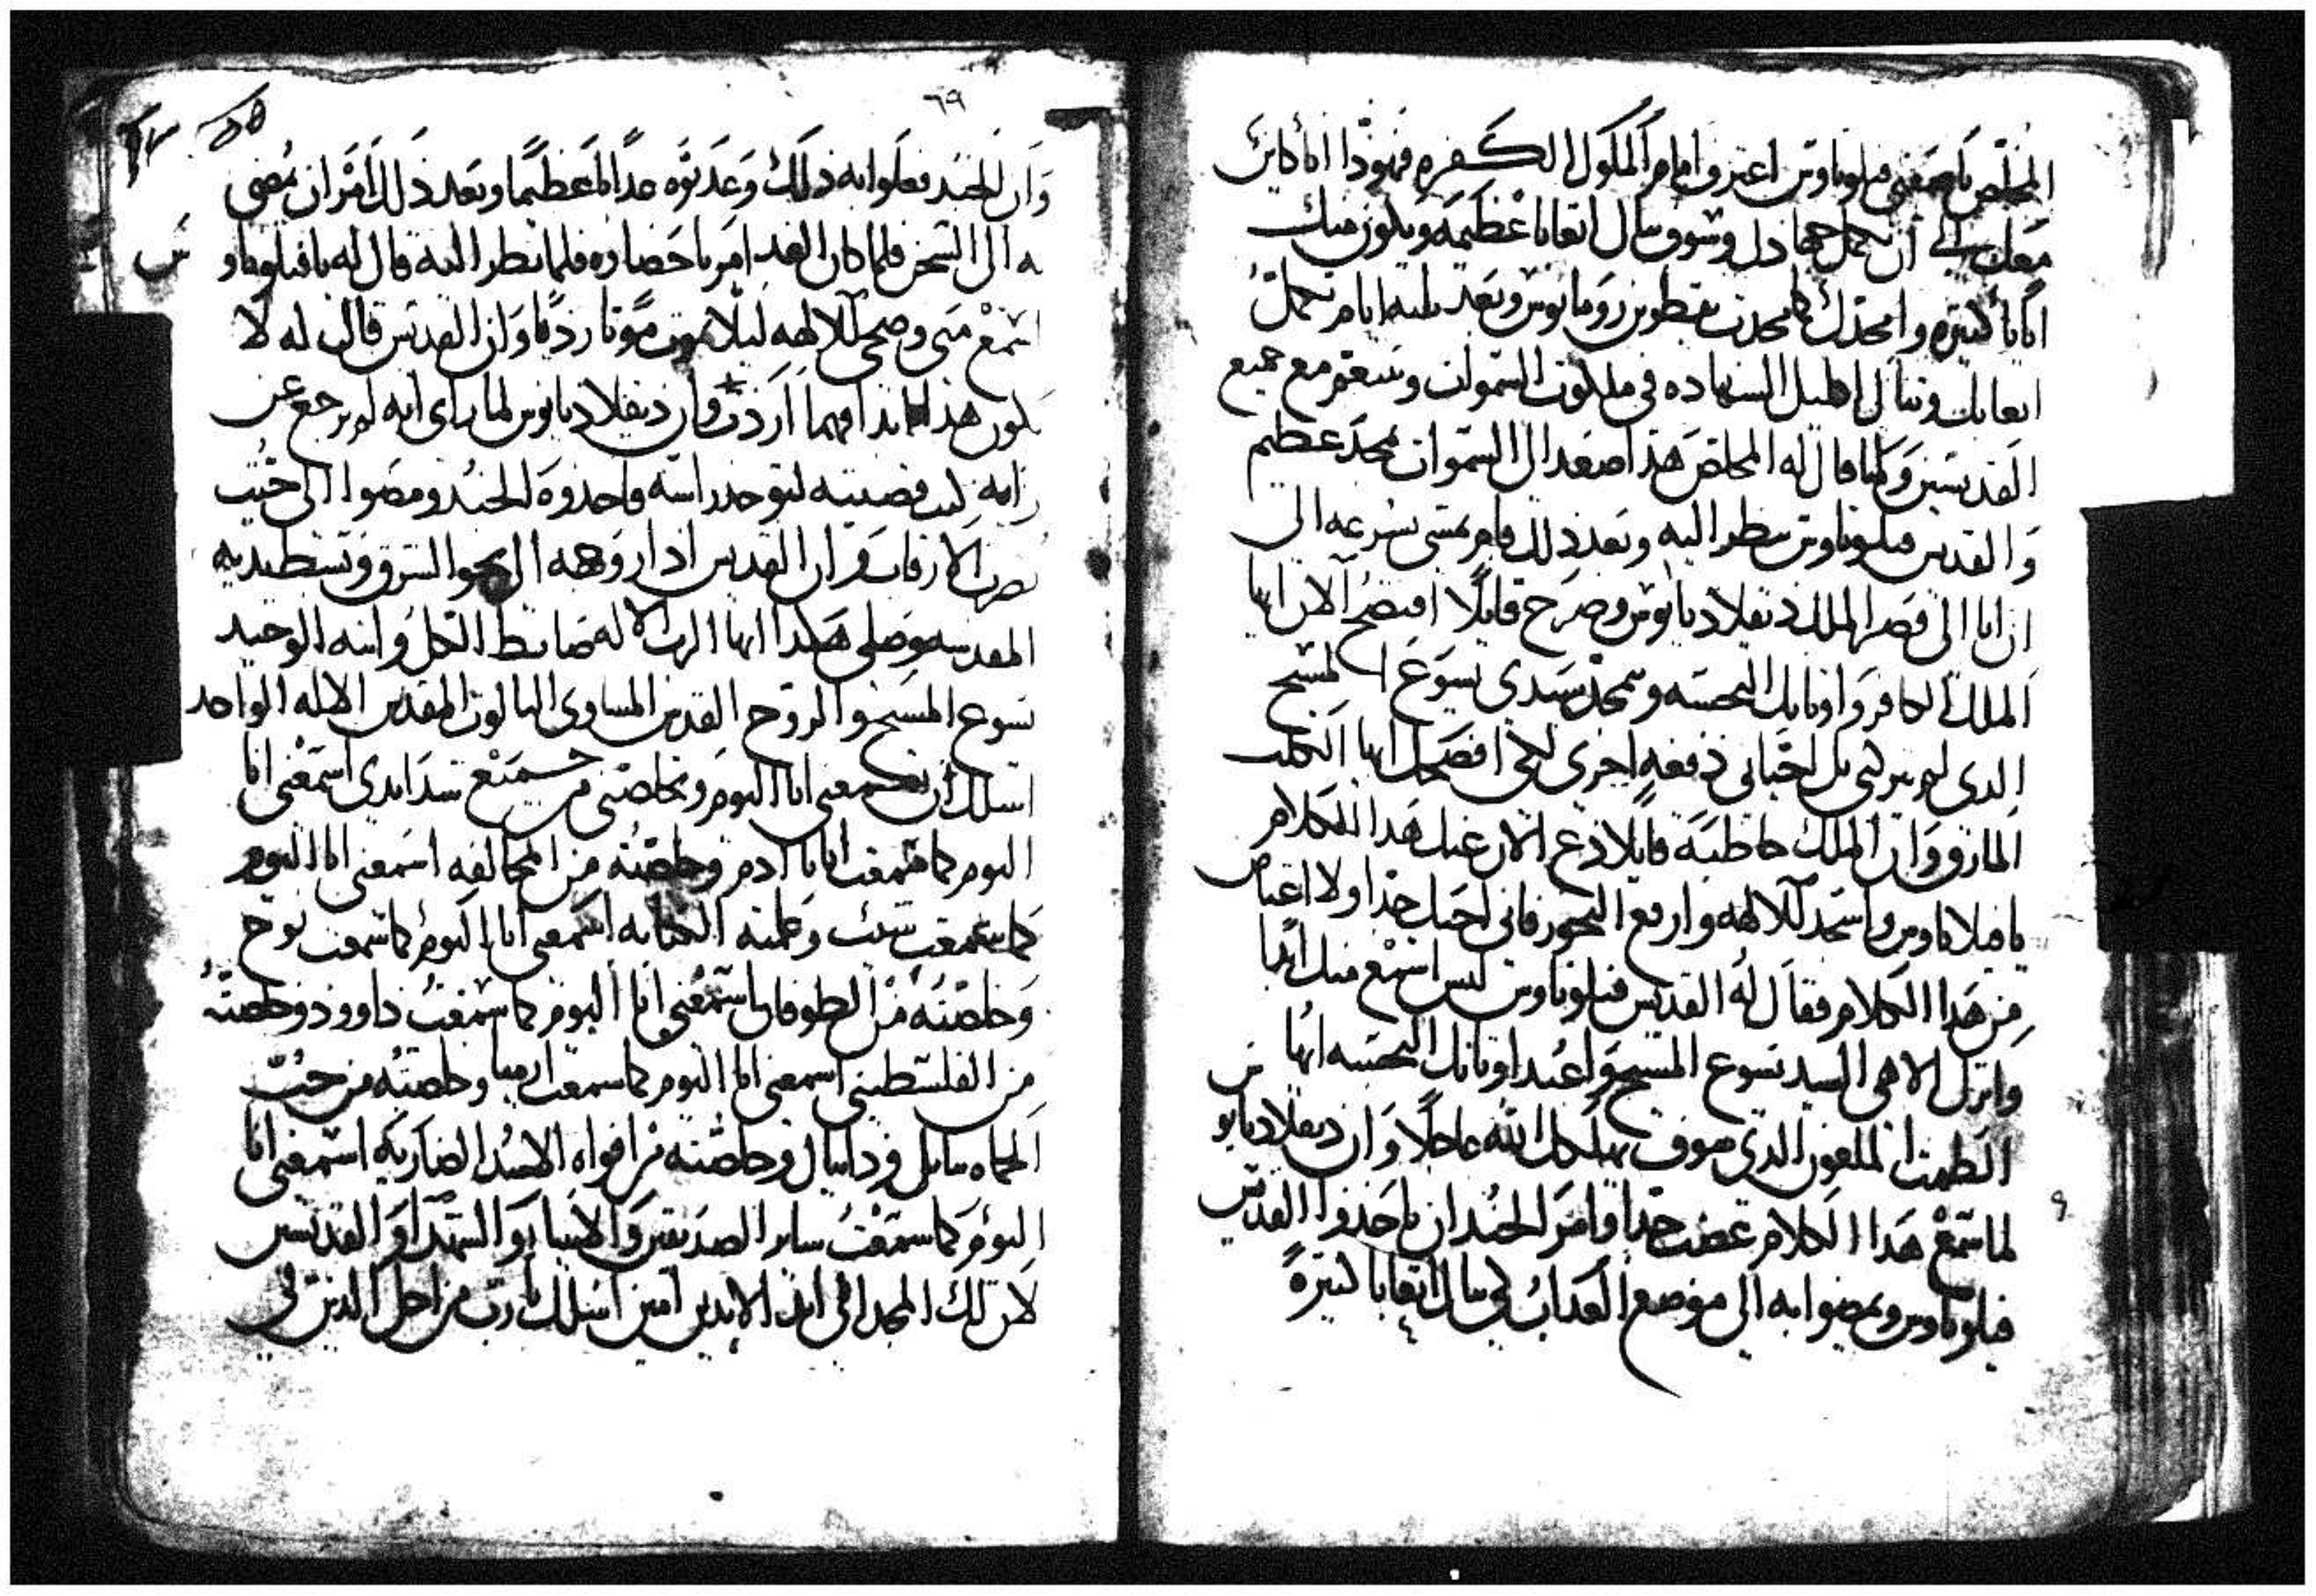 المخلص يا صفيي فيلوباوس اعترف امام الملوك الكفره فهوذا انا كاين
معك الى ان تكمل جهادك وسوف تنال اتعابا عظيمه ويكون منك
اياتا كثيره وامجدك كما مجدت بقطر بن رومانوس وبعد ثلثه ايام تكمل
اتعابك وتنال اكليل الشهاده في ملكوت السموات وتتنعم مع جميع
القديسين ولما قال له المخلص هذا صعد الى السموات بمجد عظيم
والقديس فيلوباوس ينظر اليه وبعد ذلك قام يمشي بسرعه الى
ان اتا الى قصر الملك ديقلاديانوس وصرخ قايلا افتضح الان ايها
الملك الكافر واوثانك النجسه وتمجد سيدي يسوع المسيح
الذي لم يتركني بل احياني دفعه اخرى لكي افضحك ايها الكلب
المارق وان الملك خاطبه قايلا دع الان عنك هذا الكلام
يا فيلاباوس واسجد للالهه وارفع البخور فاني احبك جدا ولا اغتاض
من هذا الكلام فقال له القديس فيلوباوس ليس اسمع منك ابدا
واترك الاهي السيد يسوع المسيح واعبد اوثانك النجسه ايها
الطمث الملعون الذي سوف يهلكك الله عاجلا وان ديقلاديانوس
لما سمع هذا الكلام غضب جدا وامر الجند ان ياخذوا القديس
فيلوباوس ويمضوا به الى موضع العذاب لكي ينال اتعابا كثيرة
٦٩
وان الجند فعلوا به ذلك وعذبوه عذابا عظيما وبعد ذلك امر ان يمضى
به الى السجن فلما كان الغد امر باحضاره فلما نظر اليه قال له يا فيلوباوس
اسمع مني وضحي للالهه ليلا تموت موتا رديا وان القديس قال له لا
يكون هذا ابدا مهما اردت وان ديقلاديانوس لما راى انه لم يرجع عن
رايه كتب قضيته لتوخد راسه واخذوه الجند ومضوا الى حيث
تضرب الارقاب وان القديس ادار وجهه الى نحو الشرق وبسط يديه
المقدسه وصلى هكذا ايها الرب الاله ضابط الكل وابنه الوحيد
يسوع المسيح والروح القدس المساوي الثالوث المقدس الاله الواحد
اسلك ان تسمعني انا اليوم وتخلصني من جميع شدايدي اسمعني انا
اليوم كما سمعت ابانا ادم وخلصته من المخالفه اسمعني انا اليوم
كما سمعت شيث وعلمته الكتابه اسمعني انا اليوم كما سمعت نوح
وخلصته من الطوفان اسمعني انا اليوم كما سمعت داوود وخلصته
من الفلسطيني اسمعني انا اليوم كما سمعت ارميا وخلصته من جب
الحماه ودانيال وخلصته من افواه الاسد الضاريه اسمعني انا
اليوم كما سمعت ساير الصديقين والانبيا والشهدا والقديسين
لان لك المجد الى ابد الابدين امين اسلك يا رب من اجل الذين لي